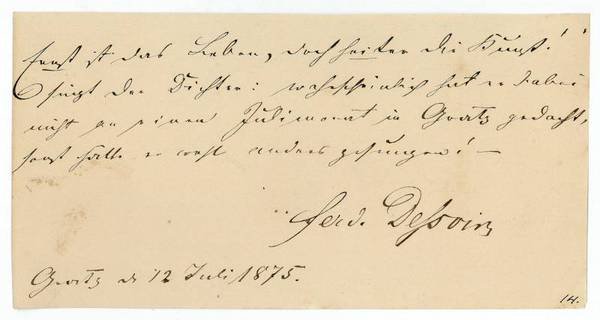 Ernst ist das Leben, doch heiter die Kunst!"
singt der Dichter: wahrscheinlich hat er dabei
nicht an einen Julimonat in Graetz gedacht,
sonst hätte er wohl anders gesungen! —
Ferd. Dessoir
Graetz d 12 Juli 1875.
14.